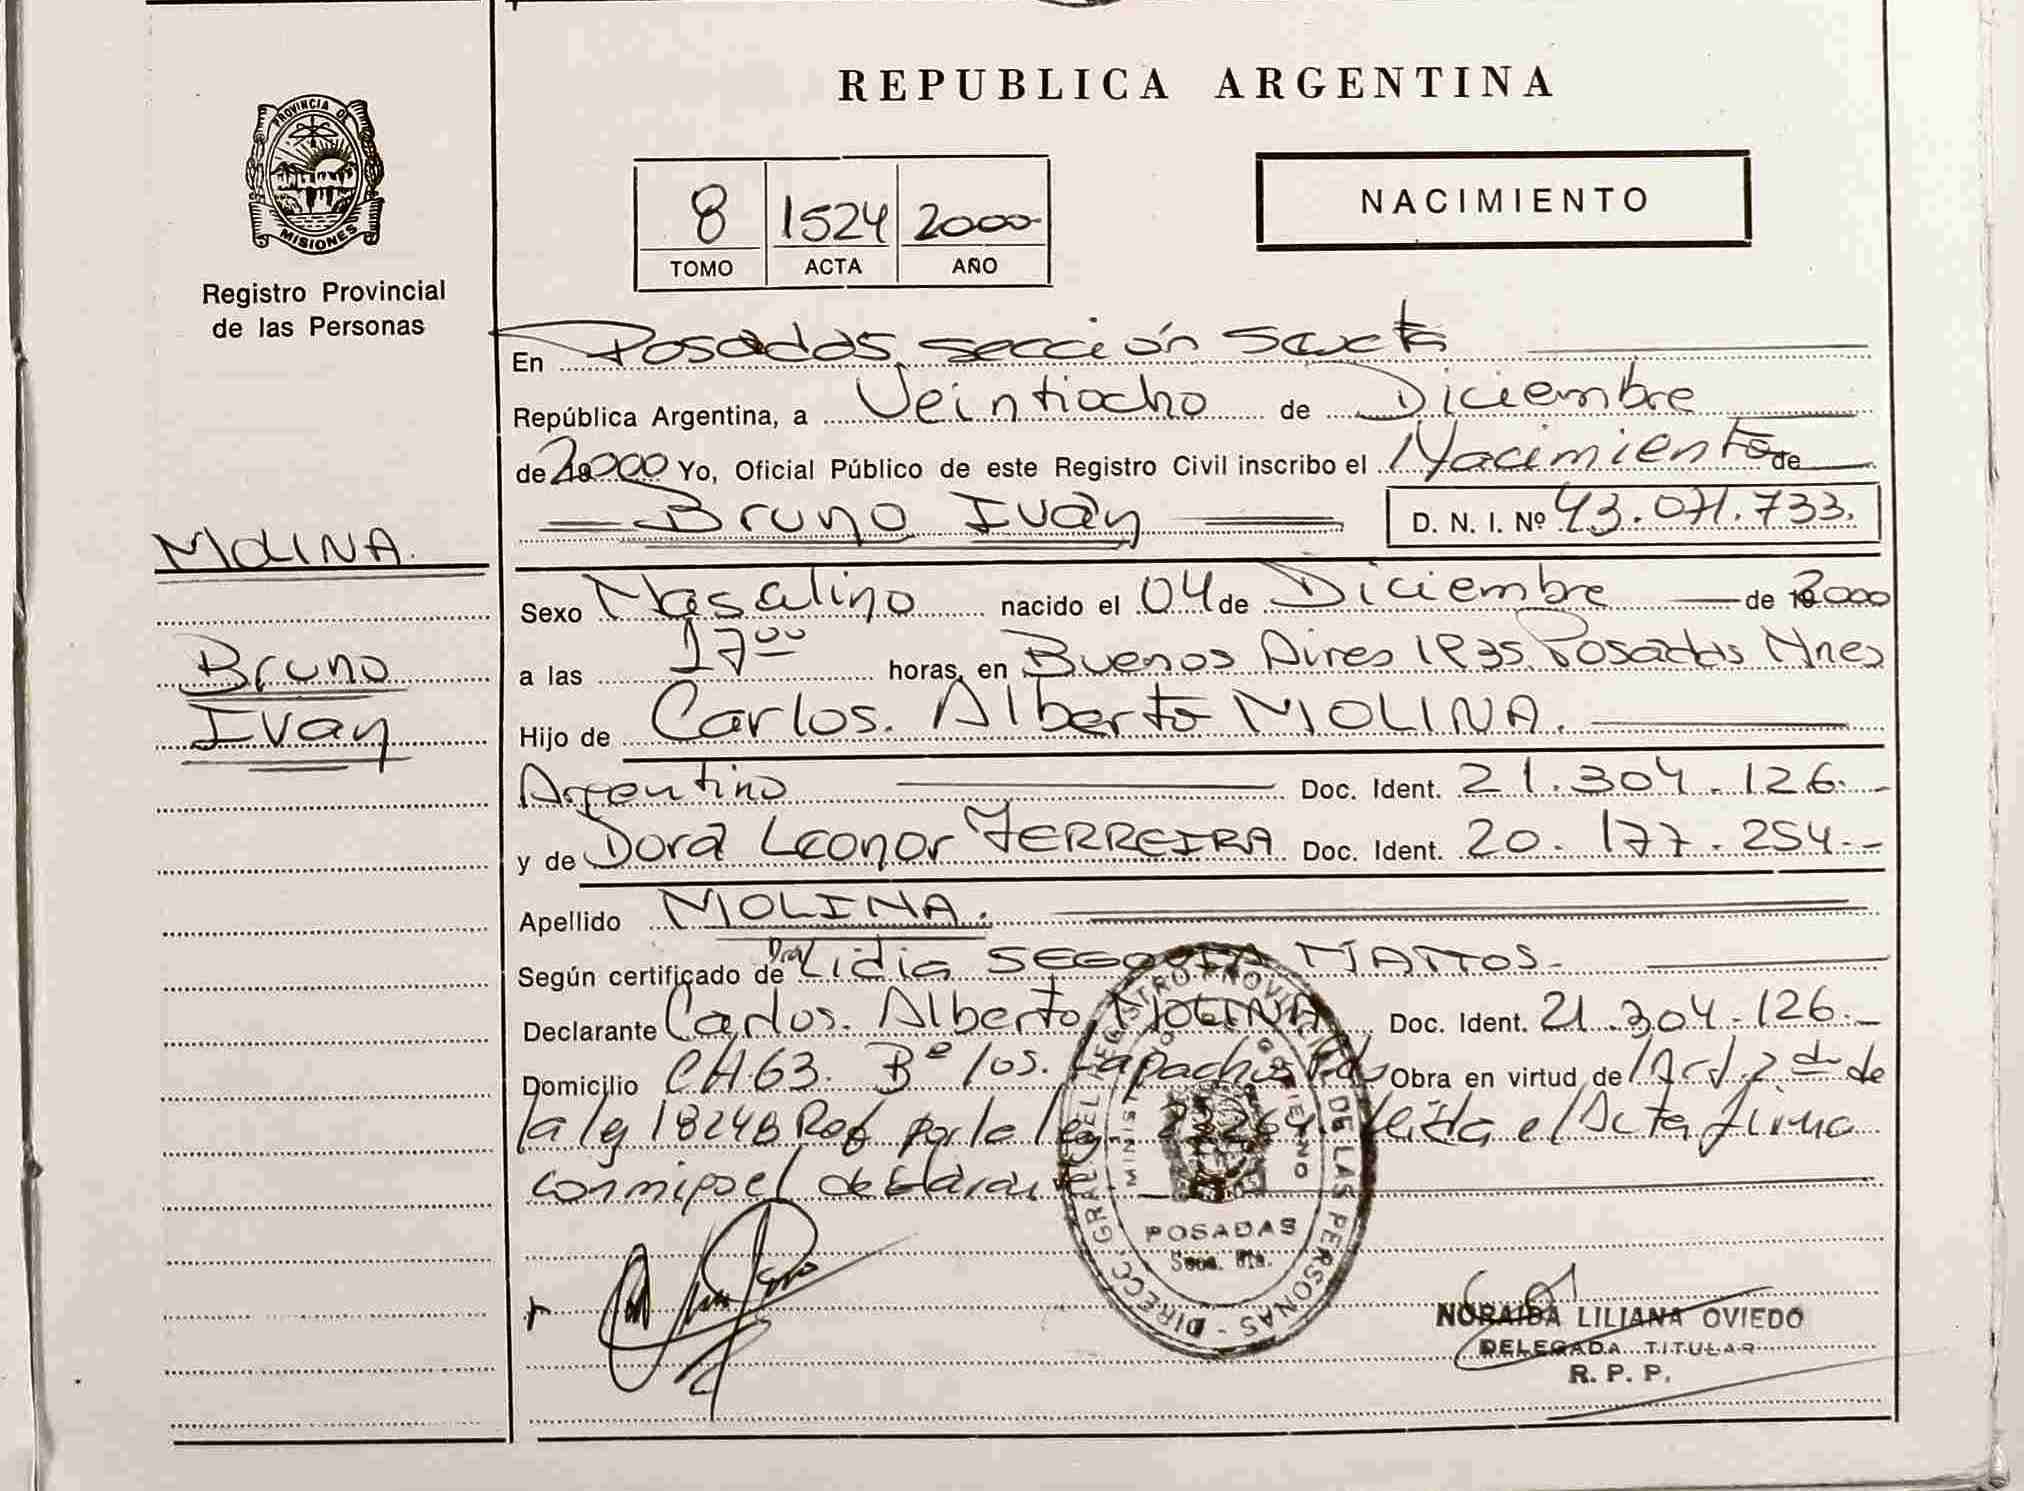 PROVINCIA DE
MISIONES
Registro Provincial
de las Personas
MOLINA.
Bruno
Ivan
REPUBLICA ARGENTINA
NACIMIENTO
8 1524 2000
TOMO ACTA AÑO
En Posadas, sección Sexta
República Argentina, a Veintiocho de Diciembre
de 2000 Yo, Oficial Público de este Registro Civil inscribo el Nacimiento de
Bruno Iván D. N. I. Nº 43.071.733.
Sexo Masculino nacido el 04 de Diciembre de 2000
a las 17 00 horas, en Buenos Aires 1935. Posadas Mnes
Hijo de Carlos. Alberto MOLINA.
Argentino Doc. Ident. 21.304.126.
y de Dora Leonor FERREIRA Doc. Ident. 20.177.254.
Apellido MOLINA.
Según certificado de Dra Lidia SEGOVIA MATTOS.
Declarante Carlos. Alberto MOLINA Doc. Ident. 21.304.126.
Domicilio CH.63. Bº los. Lapachos Pdas Obra en virtud de
la ley 18248 Ref por la ley leída el Acta firma
conmigo el declarante
DIRECC. GRAL. DEL REGISTRO PROVINCIAL DE LAS PERSONAS
MINISTERIO GOBIERNO
POSADAS
Secc. 6ta.
NORAIDA LILIANA OVIEDO
DELEGADA TITULAR
R. P. P.